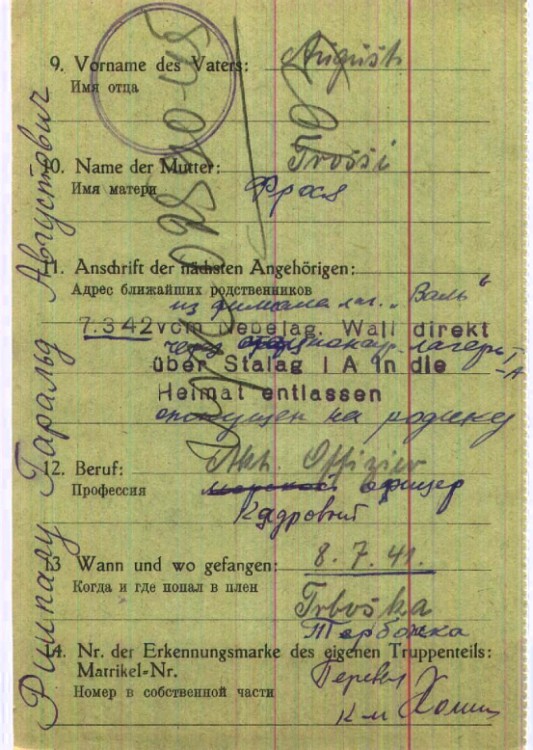 9. Vorname des Vaters: August
Имя отца
10. Name der Mutter: Frossi
Имя матери Фрося
11. Anschrift der nächsten Angehörigen:
Адрес ближайших родственников
из филиала лаг. „Валь"
7.3 42 vom Nebelag. Wall direkt
через лагерь I-А
über Stalag I A in die
Heimat entlassen
отпущен на родину
12. Beruf: Akt. Offizier
Профессия офицер
Кадровый
13 Wann und wo gefangen: 8. 7. 41.
Когда и где попал в плен
Trboška
Тербошка
14. Nr. der Erkennungsmarke des eigenen Truppenteils:
Matrikel-Nr.
Номер в собственной части
Перевел
к-н
Гаральд Августович